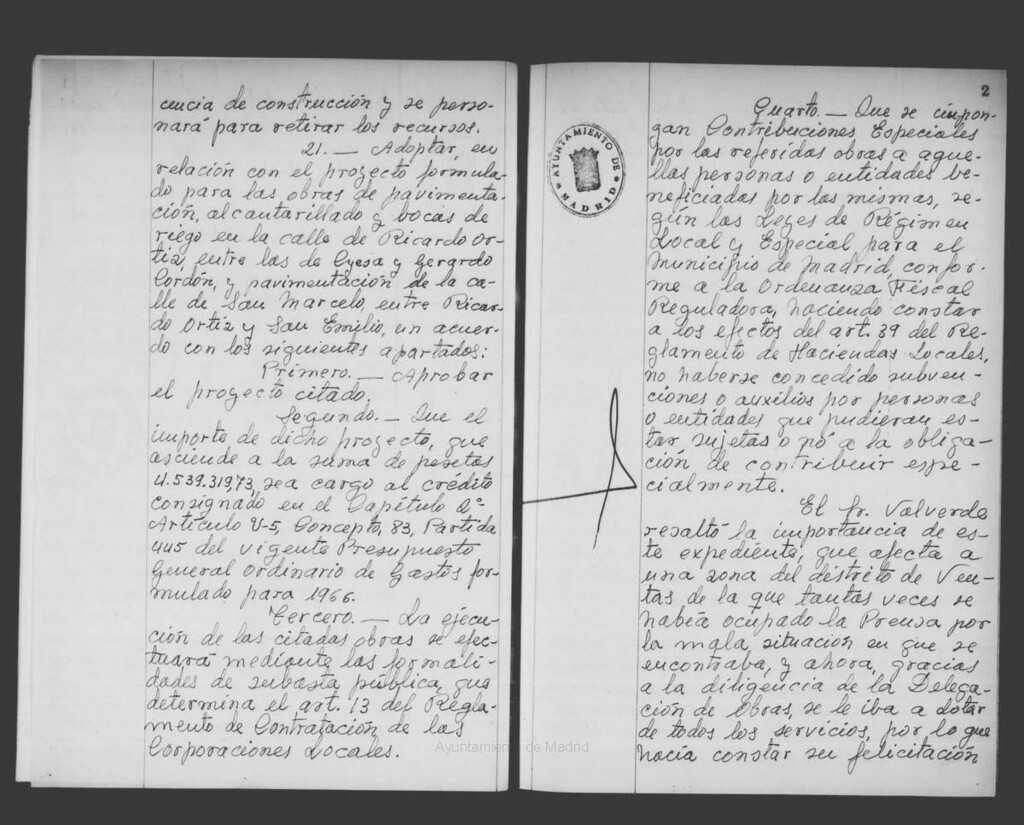 cencia de construcción y se perso-
nará para retirar los recursos.
21. — Adoptar, en
relación con el proyecto formula-
do para las obras de pavimenta-
ción, alcantarillado y bocas de
riego en la calle de Ricardo Or-
tiz, entre las de Eyesa y Gerardo
Cordón, y pavimentación de la ca-
lle de San Marcelo, entre Ricar-
do Ortiz y San Emilio, un acuer-
do con los siguientes apartados:
Primero. — Aprobar
el proyecto citado.
Segundo. — Que el
importe de dicho proyecto, que
asciende a la suma de pesetas
4.539.319,73, sea cargo al crédito
consignado en el Capítulo 2º
Artículo U-5, Concepto, 83, Partida
445 del vigente Presupuesto
General Ordinario de Gastos for-
mulado para 1966.
Tercero. — La ejecu-
ción de las citadas obras se efec-
tuará mediante las formali-
dades de subasta pública, que
determina el art. 13 del Regla-
mento de Contratación de las
Corporaciones Locales.
2
AYUNTAMIENTO DE
MADRID
Cuarto. — Que se impon-
gan Contribuciones Especiales
por las referidas obras a aque-
llas personas o entidades be-
neficiadas por las mismas, se-
gún las Leyes de Régimen
Local y Especial para el
Municipio de Madrid, confor-
me a la Ordenanza Fiscal
Reguladora, haciendo constar
a los efectos del art. 39 del Re-
glamento de Haciendas Locales,
no haberse concedido subven-
ciones o auxilios por personas
o entidades que pudieran es-
tar sujetas o nó a la obliga-
ción de contribuir espe-
cialmente.
El Sr. Valverde
resaltó la importancia de es-
te expediente, que afecta a
una zona del distrito de Ven-
tas de la que tantas veces se
había ocupado la Prensa por
la mala situación en que se
encontraba, y ahora, gracias
a la diligencia de la Delega-
ción de Obras, se le iba a dotar
de todos los servicios, por lo que
hacía constar su felicitación
Ayuntamiento de Madrid